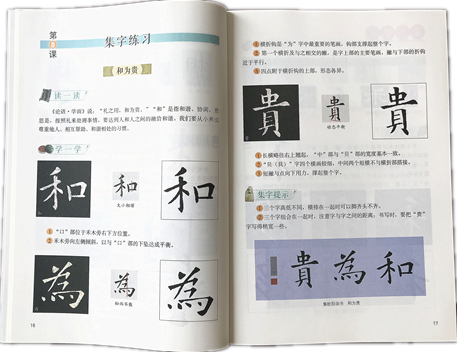 第
课
集字练习
和为贵
读一读
《论语·学而》说："礼之用，和为贵。""和"是指和谐、协调，意
思是，按照礼来处理事情，要达到人和人之间的融洽和谐。我们要从小养成
尊重他人、相互帮助、和谐相处的习惯。
学一学
和
和
和
大小相谐
①"口"部位于禾木旁右下方位置。
②禾木旁向左侧倾斜，以与"口"部的下坠达成平衡。
為
為
為
16
①横折钩是"为"字中最重要的笔画，钩部支撑起整个字。
②第一个横折及与之相交的撇，是字上部的主要笔画，撇与下部的折钩
近于平行。
③四点附于横折钩的上部，形态各异。
貴
貴
貴
动态平衡
①长横略往右上翘起，"中"部与"贝"部的宽度基本一致。
②"贝（貝）"字四个横画较细，中间两个短横不与横折部搭接。
③短撇与点向下用力，撑起整个字。
集字提示
①三个字高低不同，横排在一起时可以脚齐头不齐。
②三个字组合在一起时，注意字与字之间的距离；书写时，要把"贵"
字写得稍宽一些。
貴為和
集欧阳询书 和为贵
17